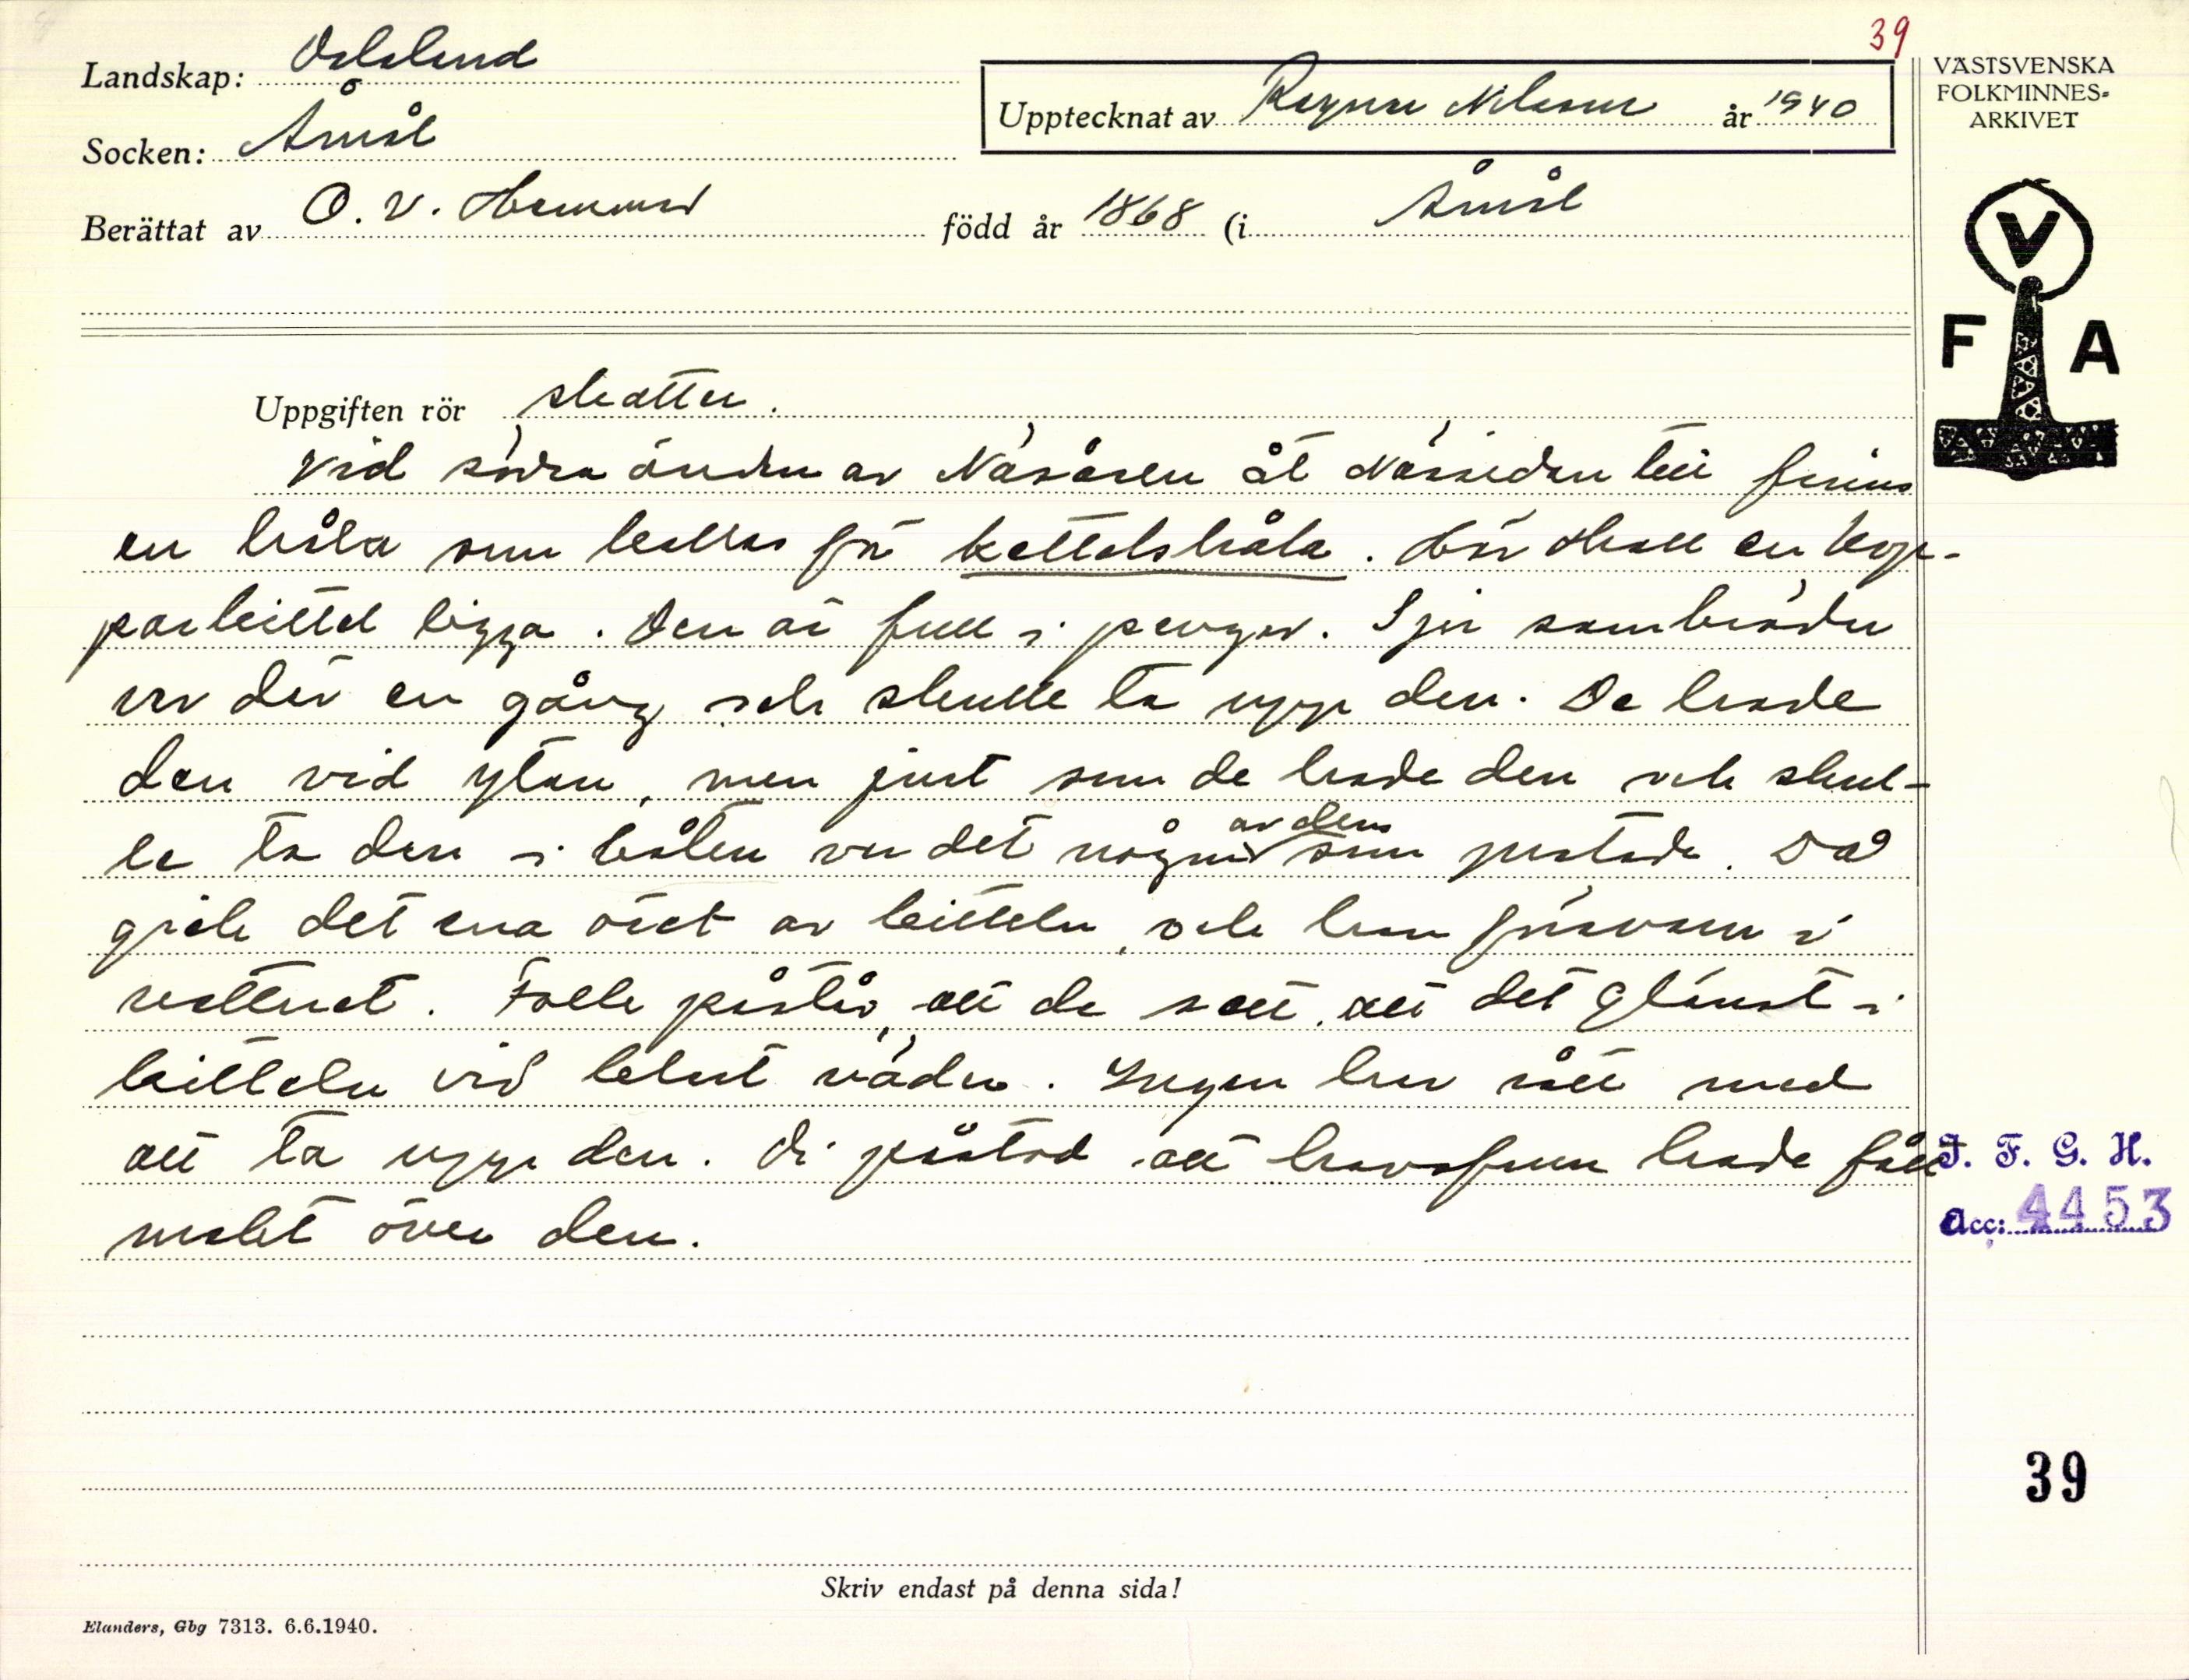 39
Landskap: Dalsland
Socken: Åmål
Upptecknat av Ragnar Nilsson år 1940
Berättat av O. V. Hammar född år 1868 (i Åmål
VÄSTSVENSKA
FOLKMINNES=
ARKIVET
V
F A
Uppgiften rör skatter.
Vid södra änden av Näsåsen åt Nässidan till finns
en håla som kallas för kettelshåla. Där skall en kop-
parkittel ligga. Den är full i pengar. Sju sambröder
var där en gång och skulle ta upp den. De hade
den vid ytan, men just som de hade den och skul-
le ta den i båten var det någon av dem som pratade. Då
gick det ena örat av kitteln, och han försvann i
vattnet. Folk påstår, att de sett, att det glänst i
kitteln vid lelnt väder. Ingen har rått med
att ta upp den. Di påstod att havsfrun hade fått
makt över den.
I. F. G. H.
Acc: 4453
39
Skriv endast på denna sida!
Elanders, Gbg 7313. 6.6.1940.